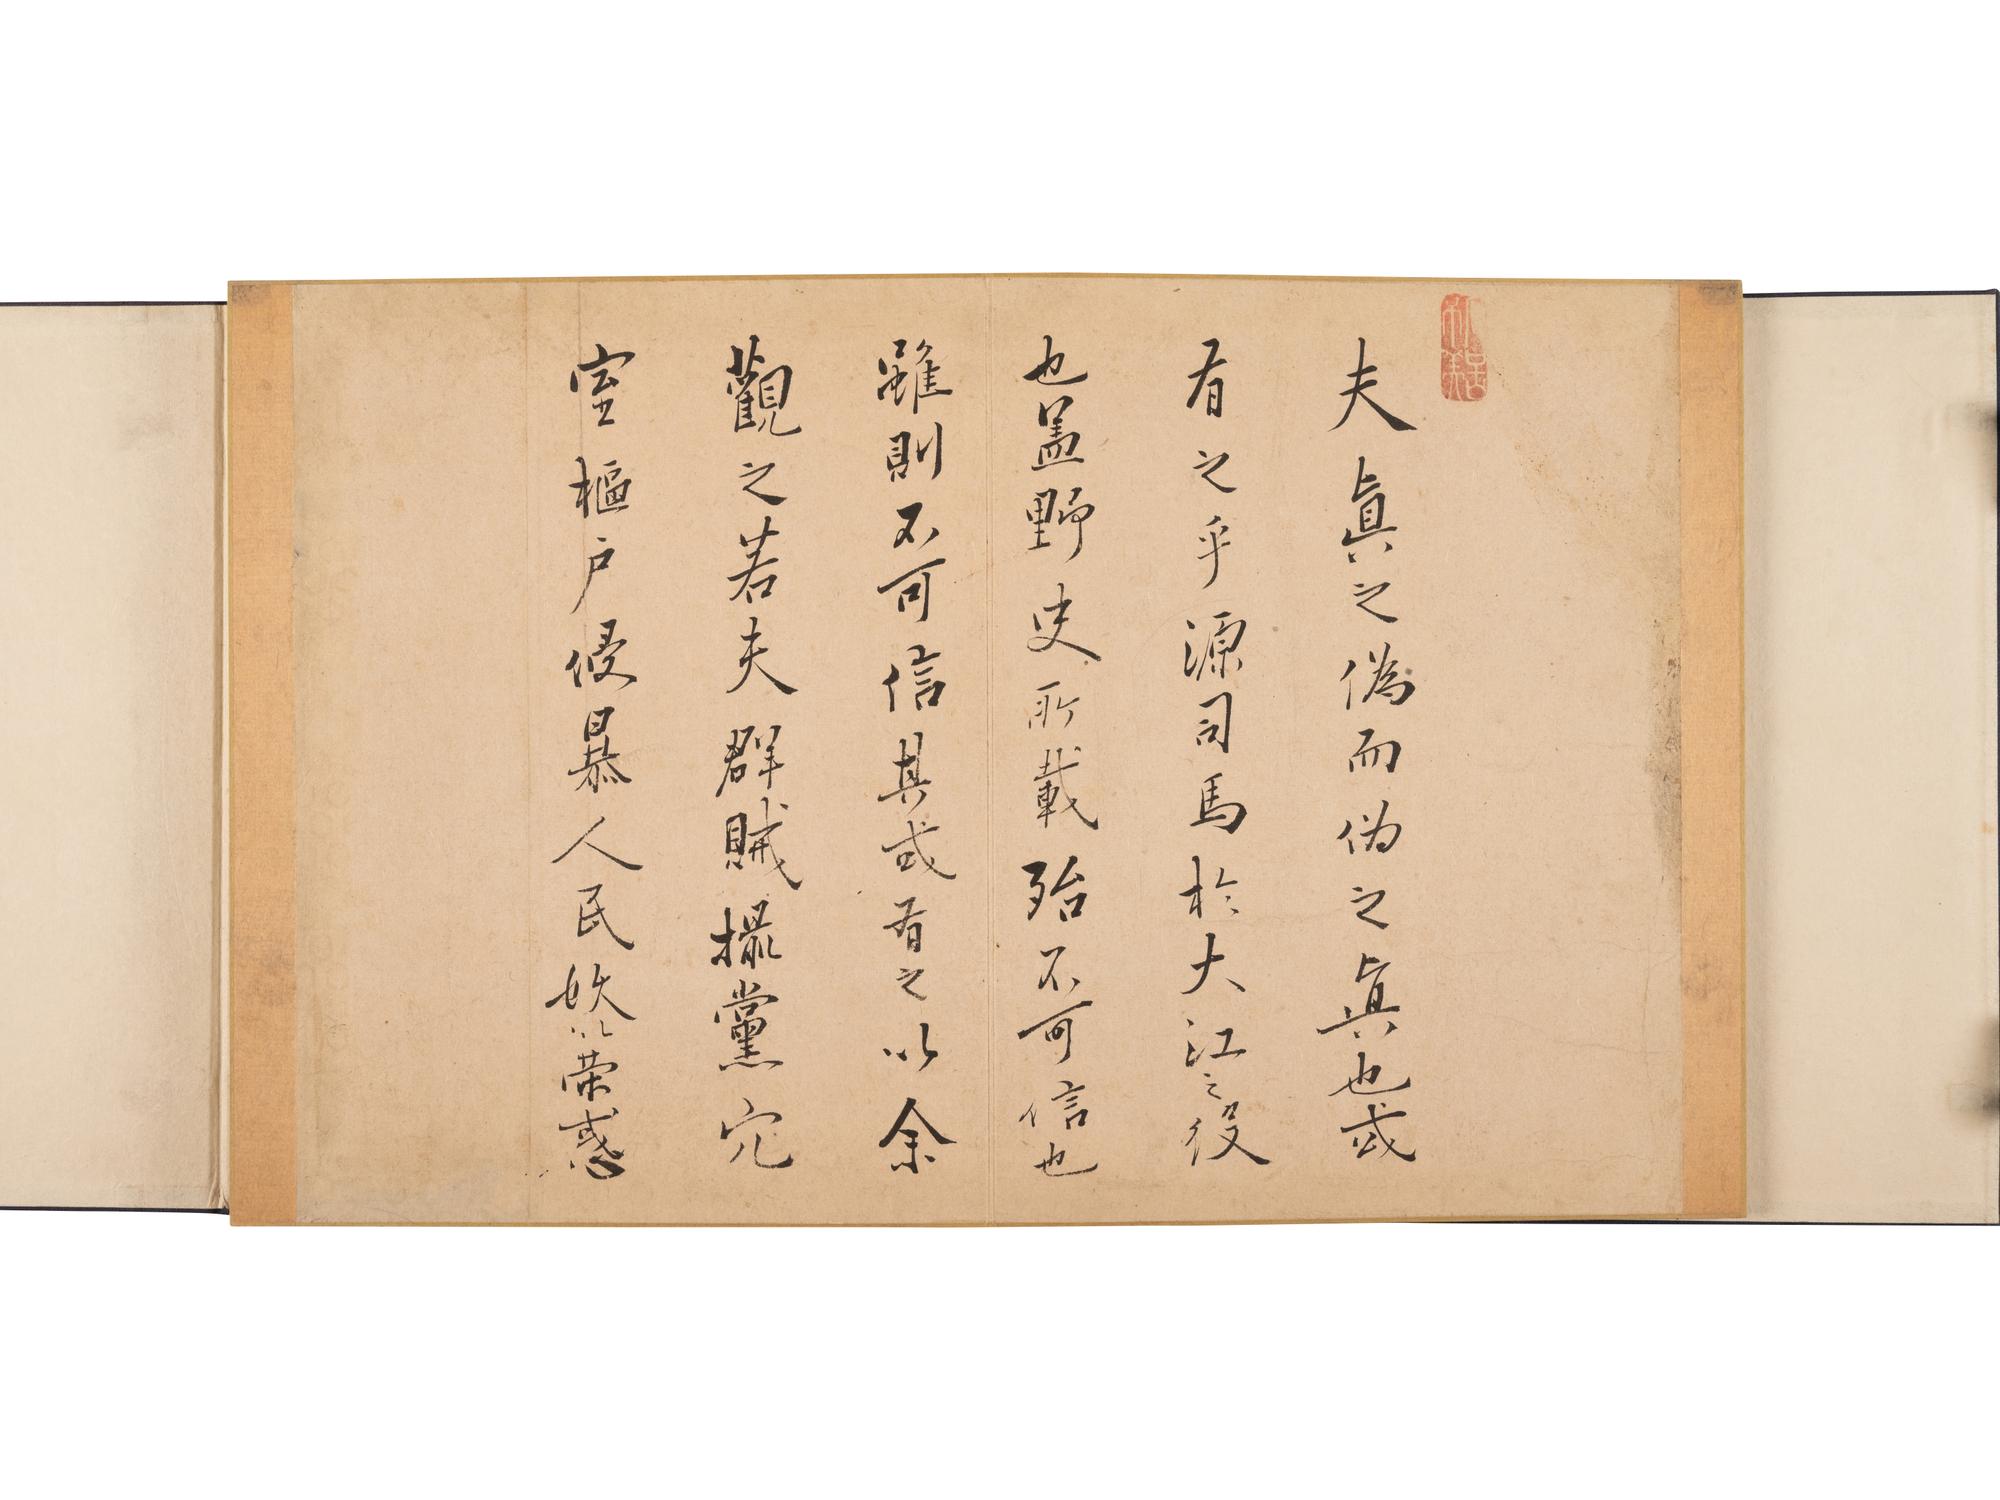 夫眞之偽而偽之眞也或
有之乎源司馬於大江之役
也蓋野史所載殆不可信也
雖則不可信其或有之以余
觀之若夫群賊擺黨穴
室樞戶侵暴人民妖以荣惑